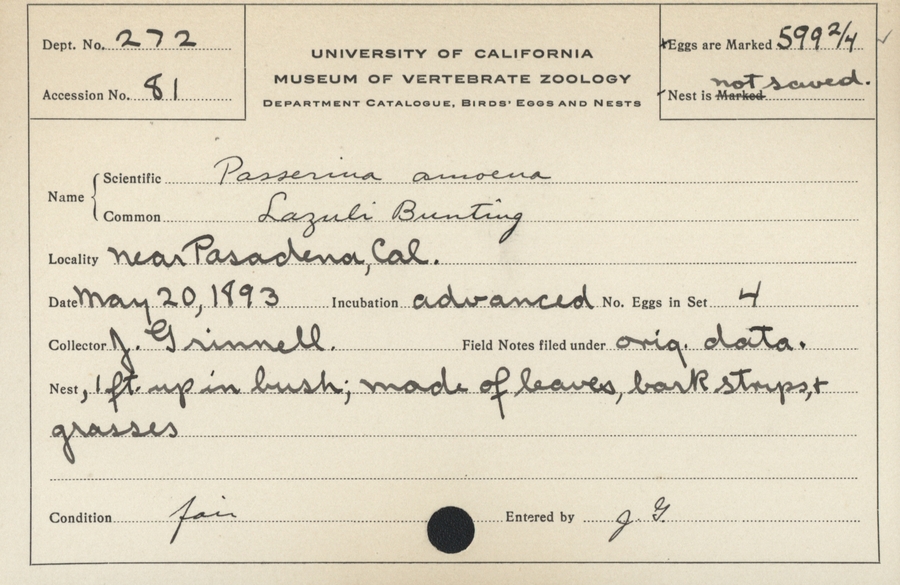 Dept. No. 272
Accession No. 81
UNIVERSITY OF CALIFORNIA
MUSEUM OF VERTEBRATE ZOOLOGY
DEPARTMENT CATALOGUE, BIRDS' EGGS AND NESTS
Eggs are Marked 599 2/4
not saved.
Nest is Marked
Name
Scientific Passerina amoena
Common Lazuli Bunting
Locality near Pasadena, Cal.
Date May 20, 1893 Incubation advanced No. Eggs in Set 4
Collector J. Grinnell. Field Notes filed under orig. data.
Nest, 1 ft. up in bush; made of leaves, bark strips, +
grasses
Condition fair Entered by J. G.